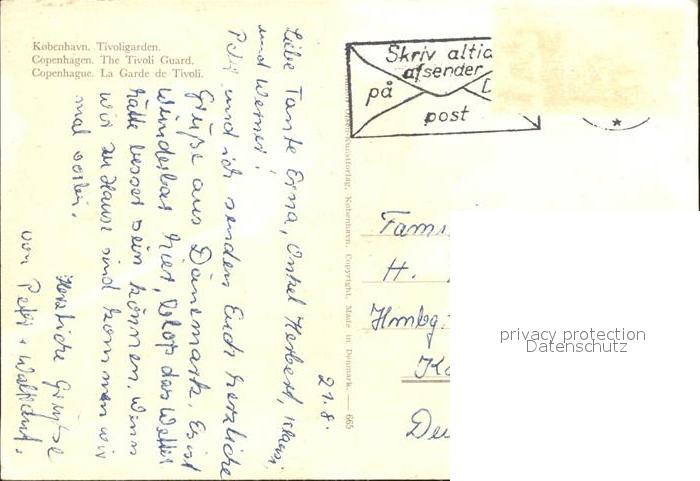 København. Tivoligarden.
Copenhagen. The Tivoli Guard.
Copenhague. La Garde de Tivoli.
Skriv altid
afsender
på
post
21.8.
Liebe Tante Erna, Onkel Herbert,
und Werner!
Peter und ich senden Euch herzliche
Grüße aus Dänemark. Es ist
wunderbar hier, bloß das Wetter
hätte besser sein können. Wenn
wir zu Hause sind kommen wir
mal vorbei.
Herzliche Grüße
von Peter + Waltraut.
Kunstforlag, København. Copyright. Made in Denmark. — 665
Fami
H.
Hmbg.
privacy protection
Datenschutz